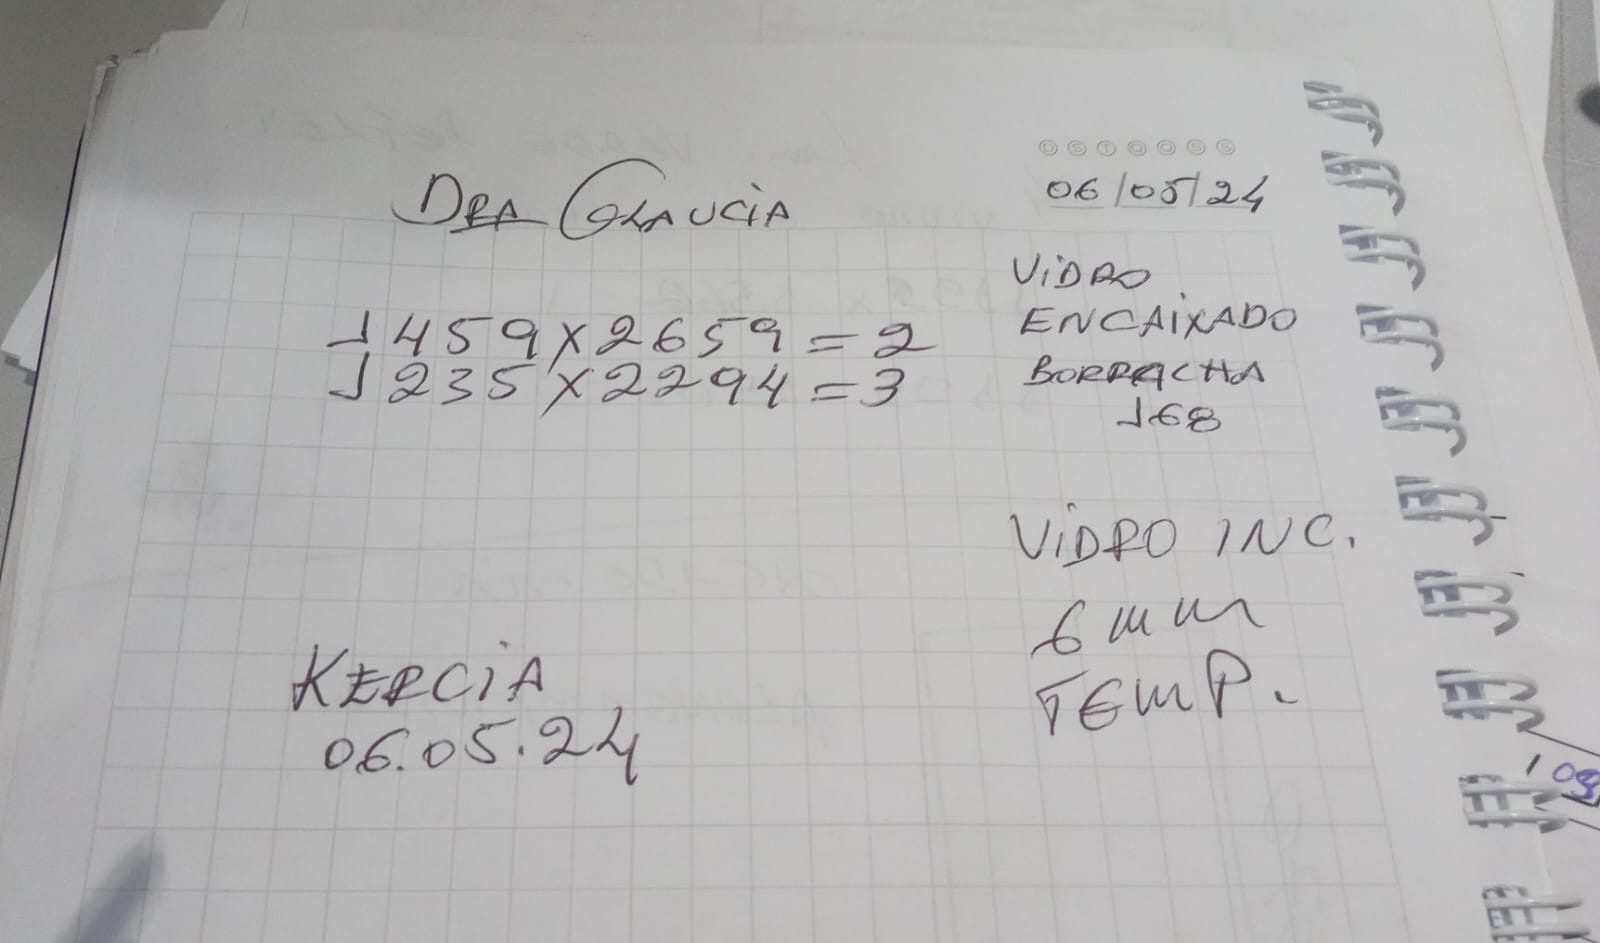 D S T Q Q S S
06/05/24
DRA GLAUCIA
VIDRO
ENCAIXADO
BORRACHA
168
1459 X 2659 = 2
1235 X 2294 = 3
VIDRO INC.
6mm
TEMP.
KERCIA
06.05.24